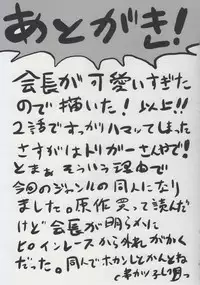 あとがき!
会長が可愛いすぎた
ので描いた!以上!!
2話ですっかりハマってしまった
さすがはトリガーさんやで!
とまぁそういう理由で
今回のジャンルの同人になり
ました。原作買って読んだ
けど会長が明らかに
ヒロインレースから外れがかく
だった。同人でホカンしてかんとね